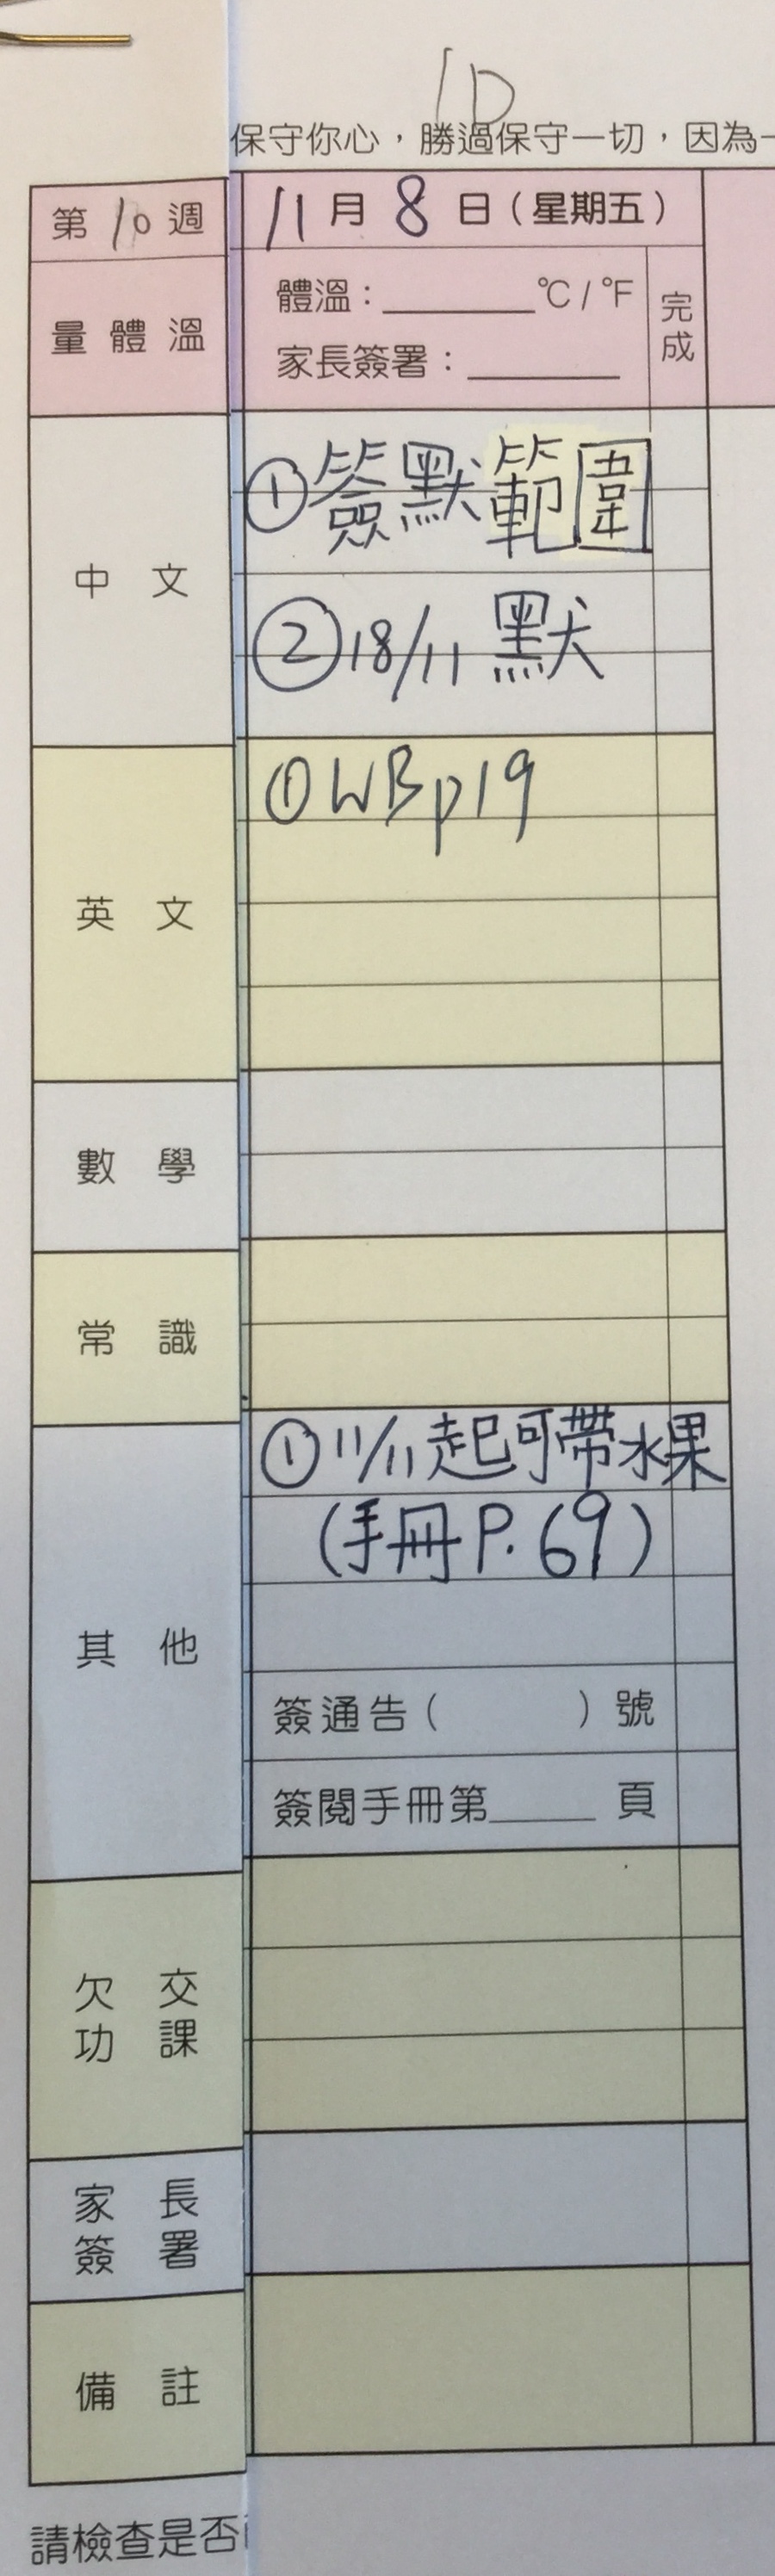 1D
保守你心，勝過保守一切，因為一
第10週
11月8日(星期五)
量體溫
體溫：______°C / °F
家長簽署：______
完成
中文
①簽默範圍
②18/11 默
英文
①WBp19
數學
常識
其他
①11/11起可帶水果
(手冊P.69)
簽通告( )號
簽閱手冊第______頁
欠交
功課
家長
簽署
備註
請檢查是否